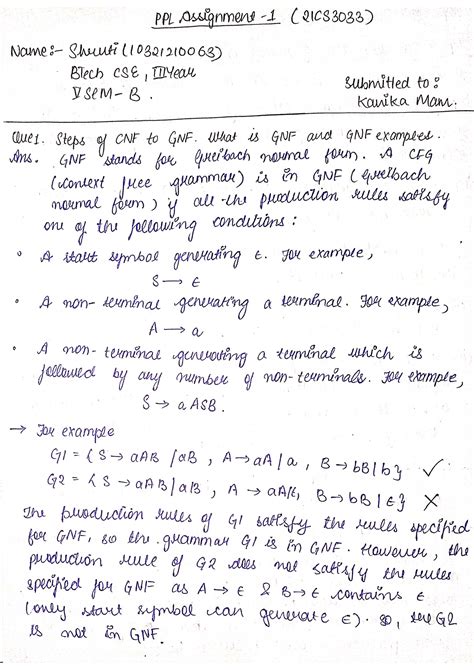 PPL Assignment -1 (21CS3033)
Name:- Shruti (10321210063)
BTech CSE, III Year
V SEM - B.
Submitted to:
Kanika Mam.
Que1. Steps of CNF to GNF. What is GNF and GNF examples.
Ans. GNF stands for Greibach normal form. A CFG
(context free grammar) is in GNF (Greibach
normal form) if all the production rules satisfy
one of the following conditions:
• A start symbol generating ε. For example,
S → ε
• A non-terminal generating a terminal. For example,
A → a
• A non-terminal generating a terminal which is
followed by any number of non-terminals. For example,
S → aASB.
→ For example
G1 = {S → aAB | aB, A → aA | a, B → bB | b} ✓
G2 = {S → aAB | aB, A → aA | ε, B → bB | ε} ✗
The production rules of G1 satisfy the rules specified
for GNF, so the grammar G1 is in GNF. However, the
production rule of G2 does not satisfy the rules
specified for GNF as A → ε & B → ε contains ε
(only start symbol can generate ε). So, the G2
is not in GNF.